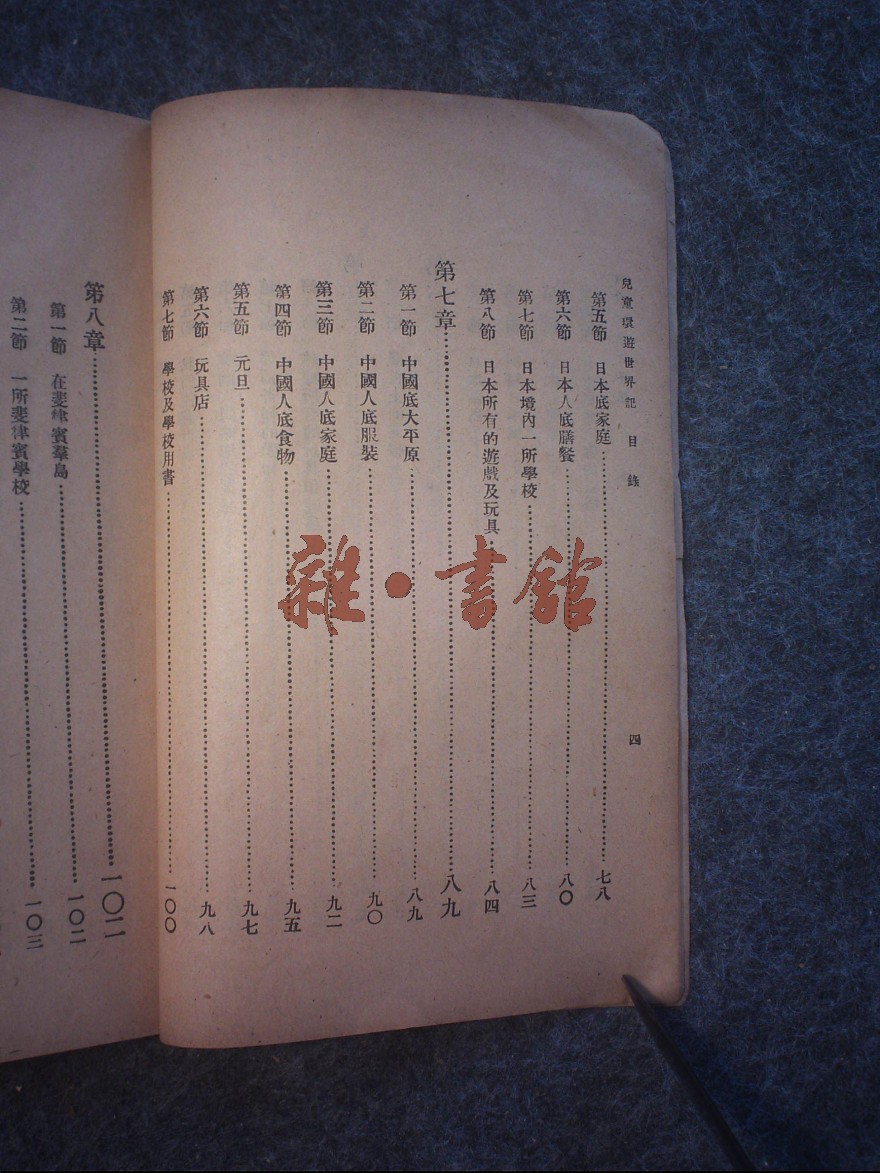 兒童環遊世界記 目錄 四
第五節 日本底家庭 七八
第六節 日本人底膳餐 八〇
第七節 日本境內一所學校 八三
第八節 日本所有的遊戲及玩具 八四
第七章 八九
第一節 中國底大平原 八九
第二節 中國人底服裝 九〇
第三節 中國人底家庭 九二
第四節 中國人底食物 九五
第五節 元旦 九七
第六節 玩具店 九八
第七節 學校及學校用書 一〇〇
第八章 一〇二
第一節 在斐律賓羣島 一〇二
第二節 一所斐律賓學校 一〇三
雜·書館